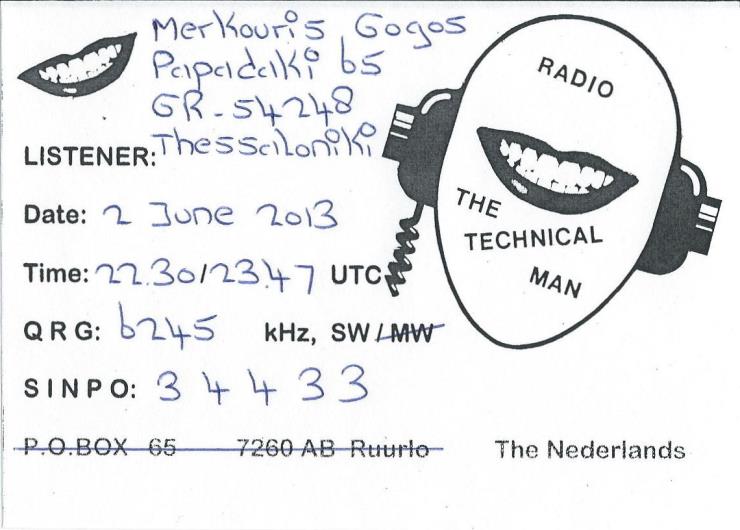 Merkouris Gogos
Papadaki 65
GR-54248
LISTENER: Thessaloniki
Date: 2 June 2013
Time: 22.30/23.47 UTC
QRG: 6245 kHz, SW/MW
SINPO: 3 4 4 3 3
P.O.BOX 65 7260 AB Ruurlo The Nederlands
RADIO
THE
TECHNICAL
MAN